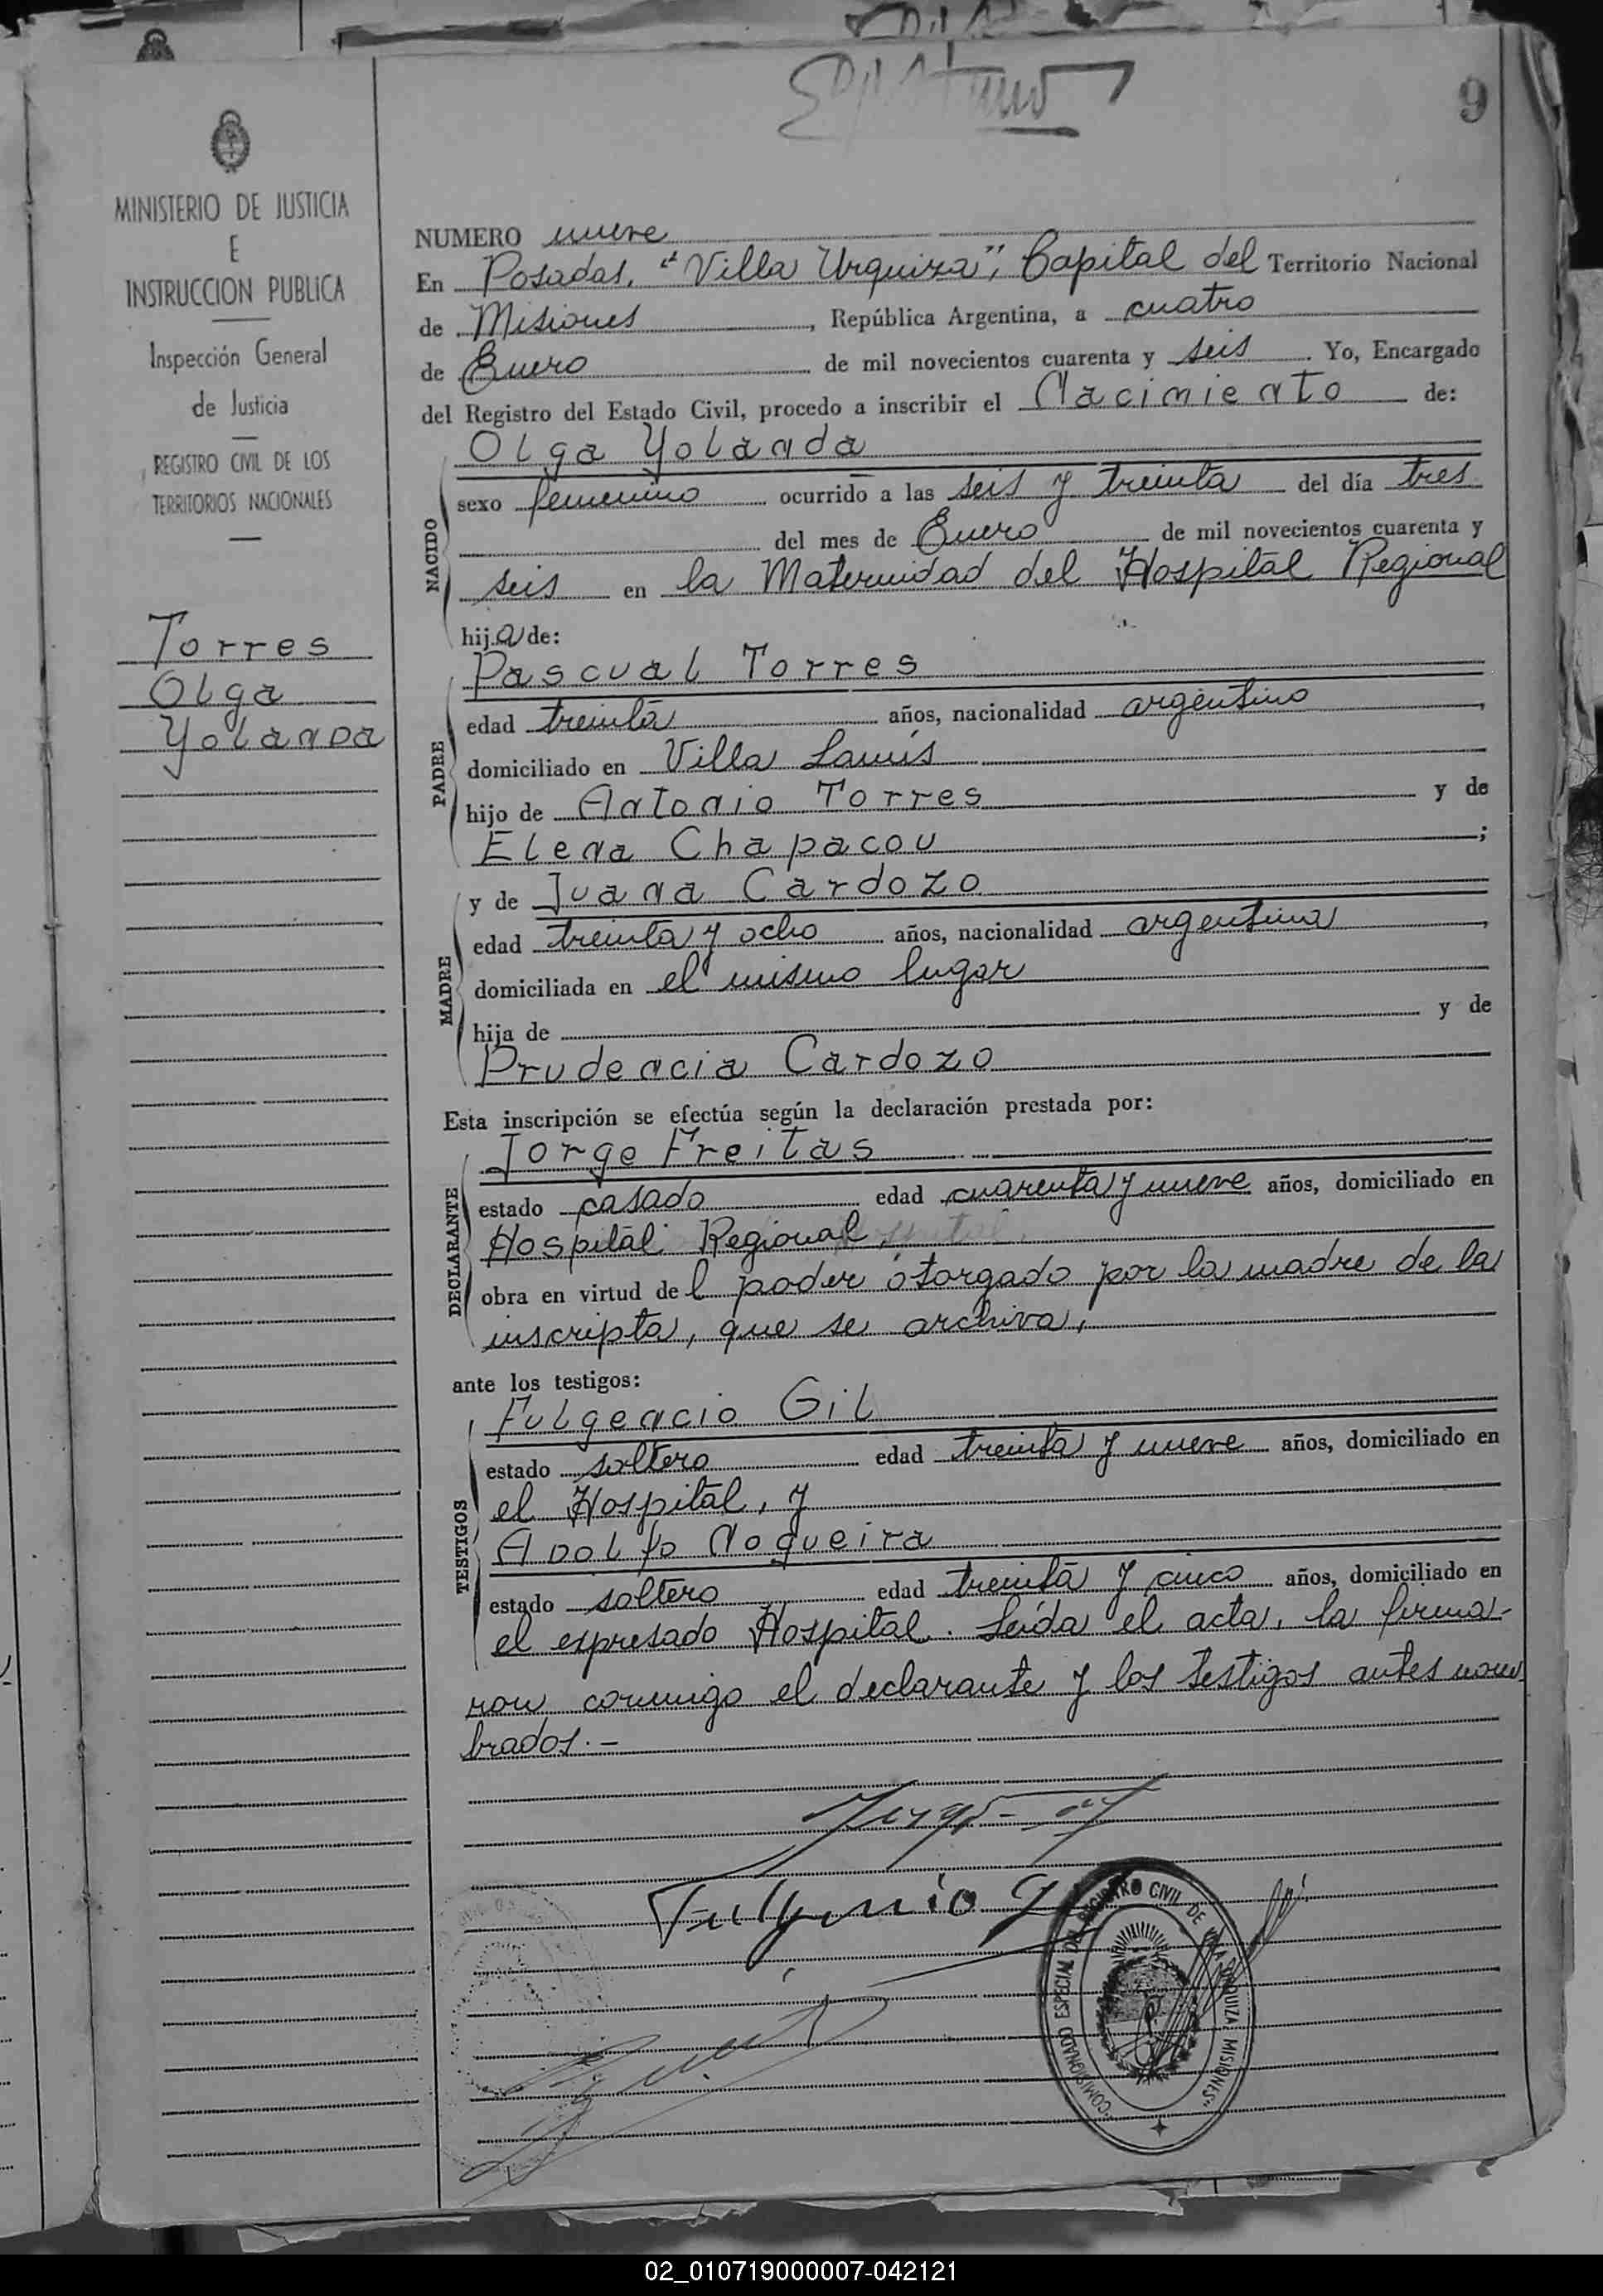 9
MINISTERIO DE JUSTICIA
E
INSTRUCCION PUBLICA
Inspección General
de Justicia
REGISTRO CIVIL DE LOS
TERRITORIOS NACIONALES
Torres
Olga
Yolanda
NUMERO nueve
En Posadas, "Villa Urquiza", Capital del Territorio Nacional
de Misiones, República Argentina, a cuatro
de Enero de mil novecientos cuarenta y seis. Yo, Encargado
del Registro del Estado Civil, procedo a inscribir el Nacimiento de:
Olga Yolanda
NACIDO
sexo femenino ocurrido a las seis y treinta del día tres
del mes de Enero de mil novecientos cuarenta y
seis en la Maternidad del Hospital Regional
hija de:
Pascual Torres
PADRE
edad treinta años, nacionalidad argentino,
domiciliado en Villa Lanús
hijo de Antonio Torres y de
Elena Chapacou;
y de Juana Cardozo
MADRE
edad treinta y ocho años, nacionalidad argentina,
domiciliada en el mismo lugar
hija de y de
Prudencia Cardozo
Esta inscripción se efectúa según la declaración prestada por:
Jorge Freitas
DECLARANTE
estado casado edad cuarenta y nueve años, domiciliado en
Hospital Regional,
obra en virtud del poder otorgado por la madre de la
inscripta, que se archiva,
ante los testigos:
Fulgencio Gil
TESTIGOS
estado soltero edad treinta y nueve años, domiciliado en
el Hospital, y
Adolfo Nogueira
estado soltero edad treinta y cinco años, domiciliado en
el expresado Hospital. Leída el acta, la firma-
ron conmigo el declarante y los testigos antes nom
brados.-
Fulgencio
"COMISIONADO ESPECIAL DEL REGISTRO CIVIL DE VILLA URQUIZA, MISIONES"
02_010719000007-042121